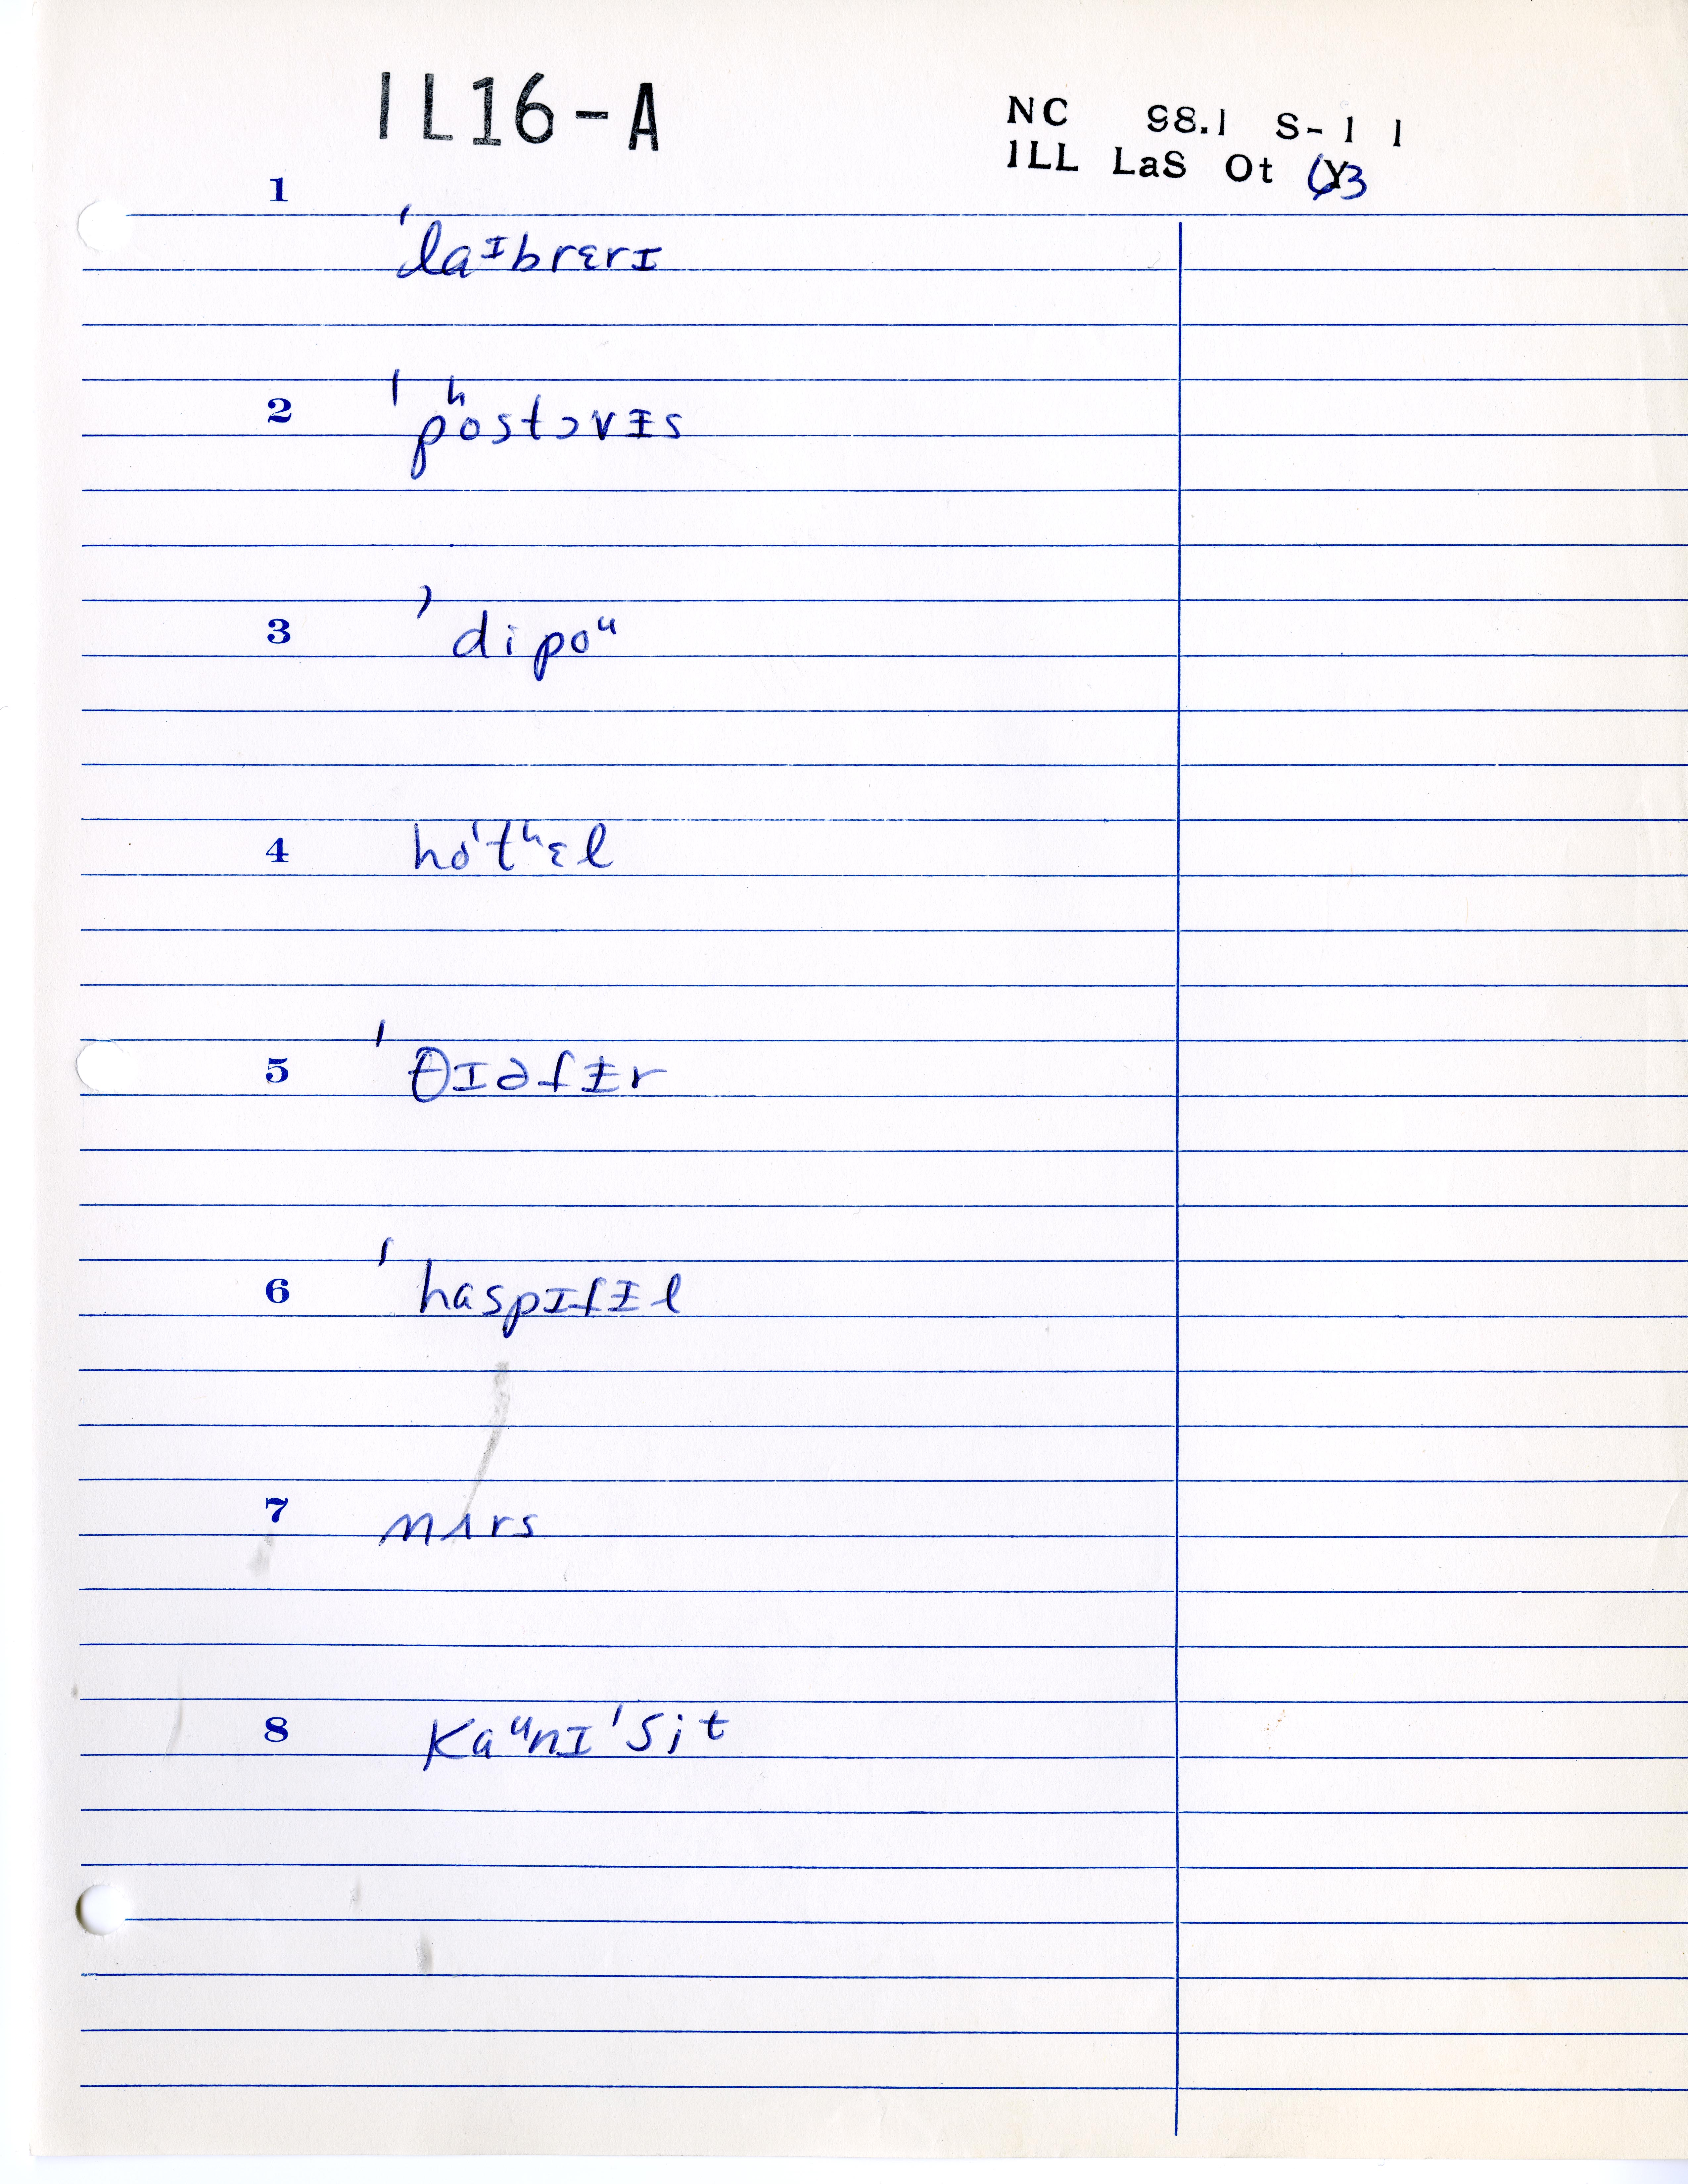 IL16-A
NC 98.1 S-1 1
ILL LaS Ot
1 ˈlaᶦbrɛrɪ
2 ˈpʰostɔvᵻs
3 ˈdipoᵘ
4 hoˈtʰɛl
5 ˈθɪəfᵻr
6 ˈhaspɪfᵻl
7 nʌrs
8 kaᵘnɪˈsit